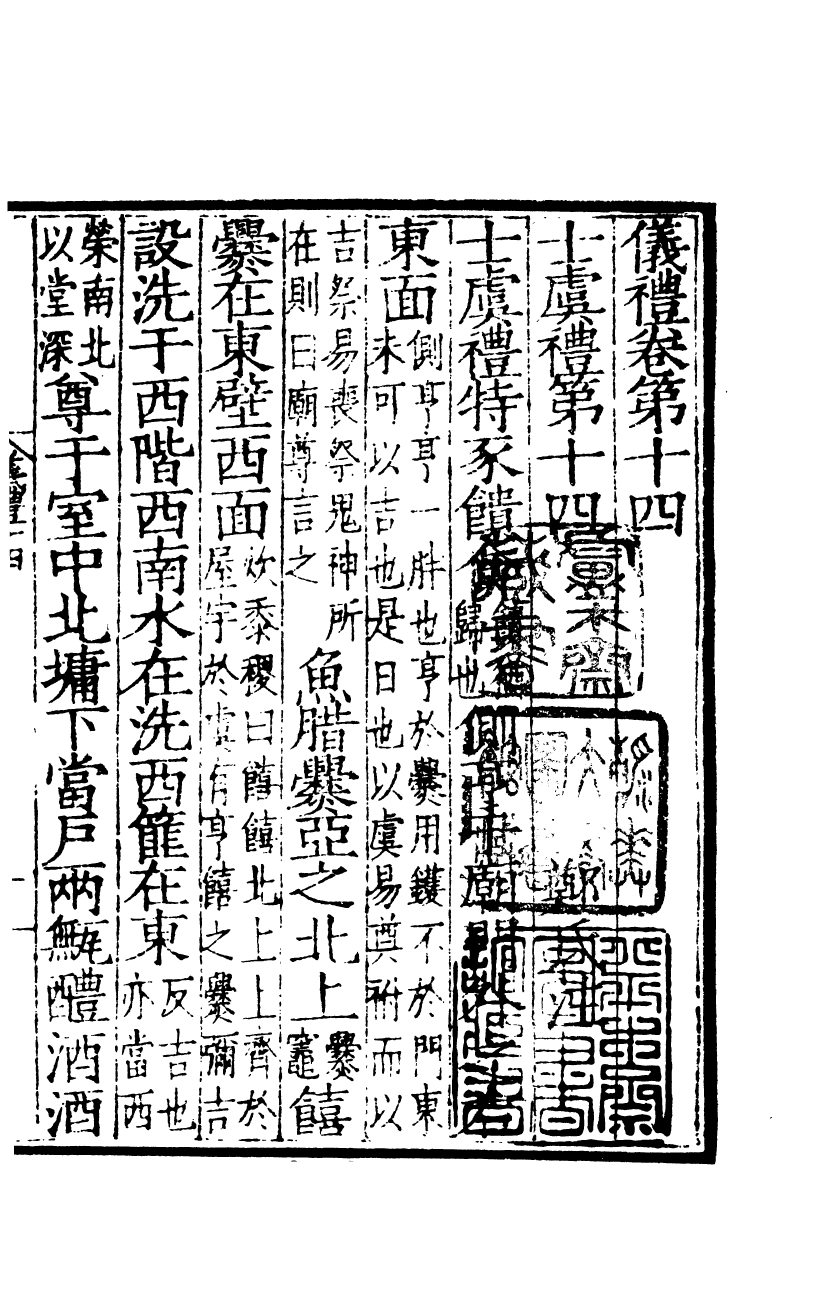 儀禮卷第十四
士虞禮第十四 鄭氏注
士虞禮特豕饋食饋猶歸也側亨于廟門外之右
東面側亨亨一胖也亨於爨用鑊不於門東未可以吉也是日也以虞易奠祔而以
吉祭易喪祭鬼神所在則曰廟尊言之魚腊爨亞之北上爨竈饎
爨在東壁西面炊黍稷曰饎饎北上上齊於屋宇於虞有亨饎之爨彌吉
設洗于西階西南水在洗西篚在東反吉也亦當西
榮南北以堂深尊于室中北墉下當戶兩甒醴酒酒